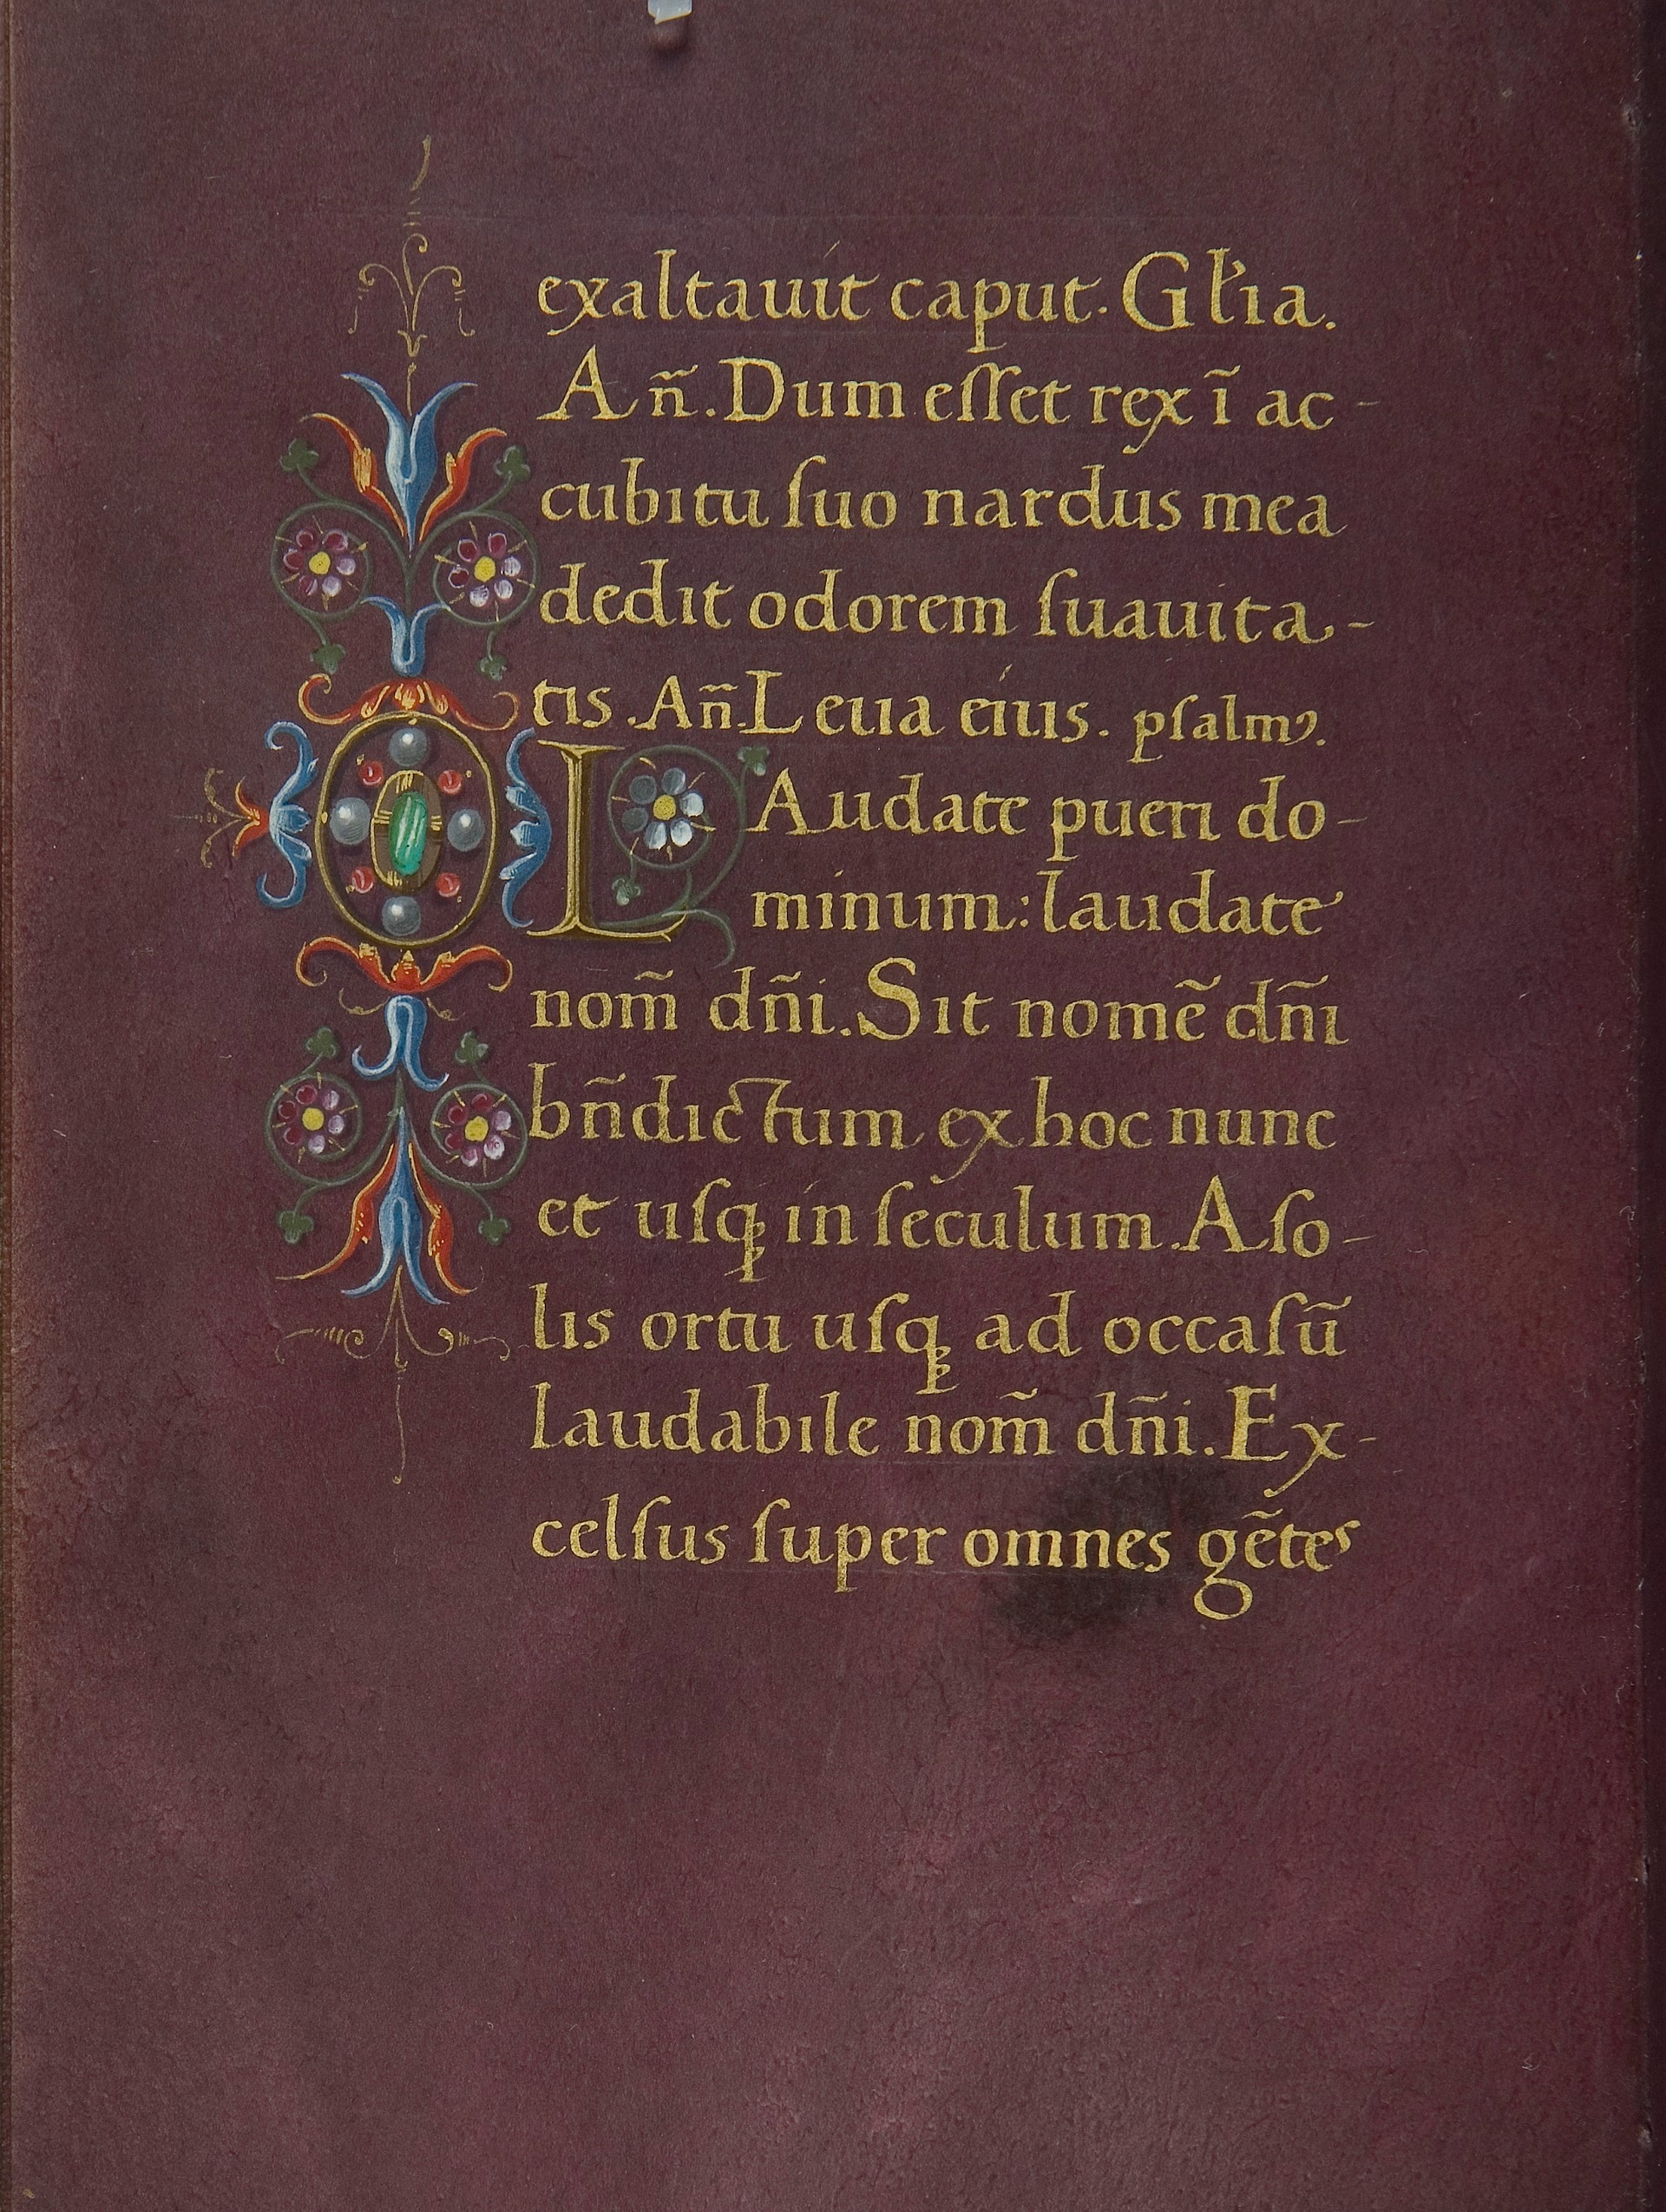 exaltauit caput. Gl'ia.
Añ. Dum eſſet rex ī ac-
cubitu ſuo nardus mea
dedit odorem ſuauita-
tis. Añ. Leua eius. pſalmꝰ.
LAudate pueri do-
minum: laudate
nom̃ dñi. Sit nomẽ dñi
bñdictum ex hoc nunc
et uſqꝫ in ſeculum. A ſo-
lis ortu uſqꝫ ad occaſũ
laudabile nom̃ dñi. Ex-
celſus ſuper omnes gẽtes